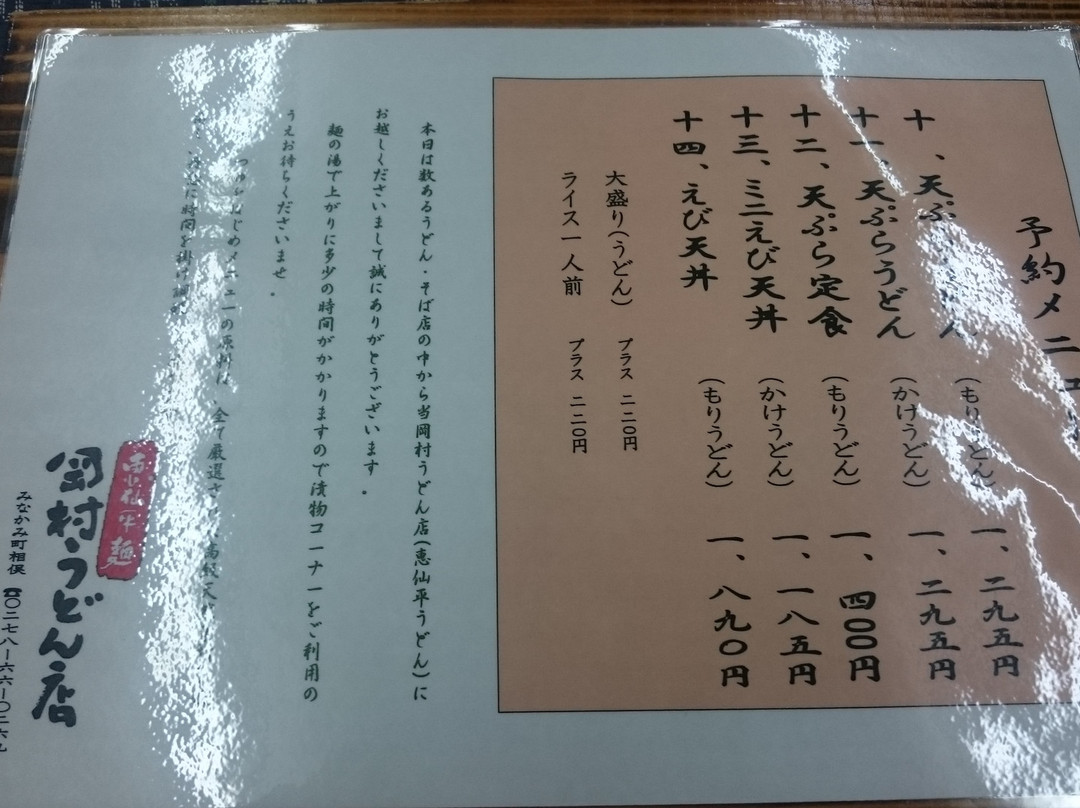 予約メニュー
十、天ぷ (もりうどん) 一、二九五円
十一、天ぷらうどん (かけうどん) 一、二九五円
十二、天ぷら定食 (もりうどん) 一、四〇〇円
十三、ミニえび天丼 (かけうどん) 一、一八五円
十四、えび天丼 (もりうどん) 一、八九〇円
大盛り(うどん) プラス 二二〇円
ライス一人前 プラス 二二〇円
本日は数あるうどん・そば店の中から当岡村うどん店(恵仙平うどん)に
お越しくださいまして誠にありがとうございます。
麺の湯で上がりに多少の時間がかかりますので漬物コーナーをご利用の
うえお待ちくださいませ。
の原料は 全て厳選さ
に時間を掛け
麺
岡村うどん店
みなかみ町相俣 ☎〇二七八ー六六ー〇二六九